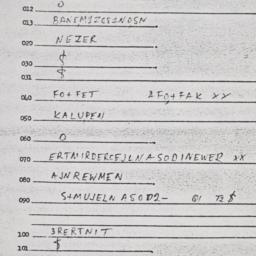 012 0
013 BANEMIZCSINOSN
020 NEZER
030 $
031 $
040 FO+FET
050 KALUPEN
060 0
070 ERTNIRDERCEJLNASODINEWER XX
080 AJNREWMEN
090 S+MUJELNASOD2-
100 BRERTNIT
101 $